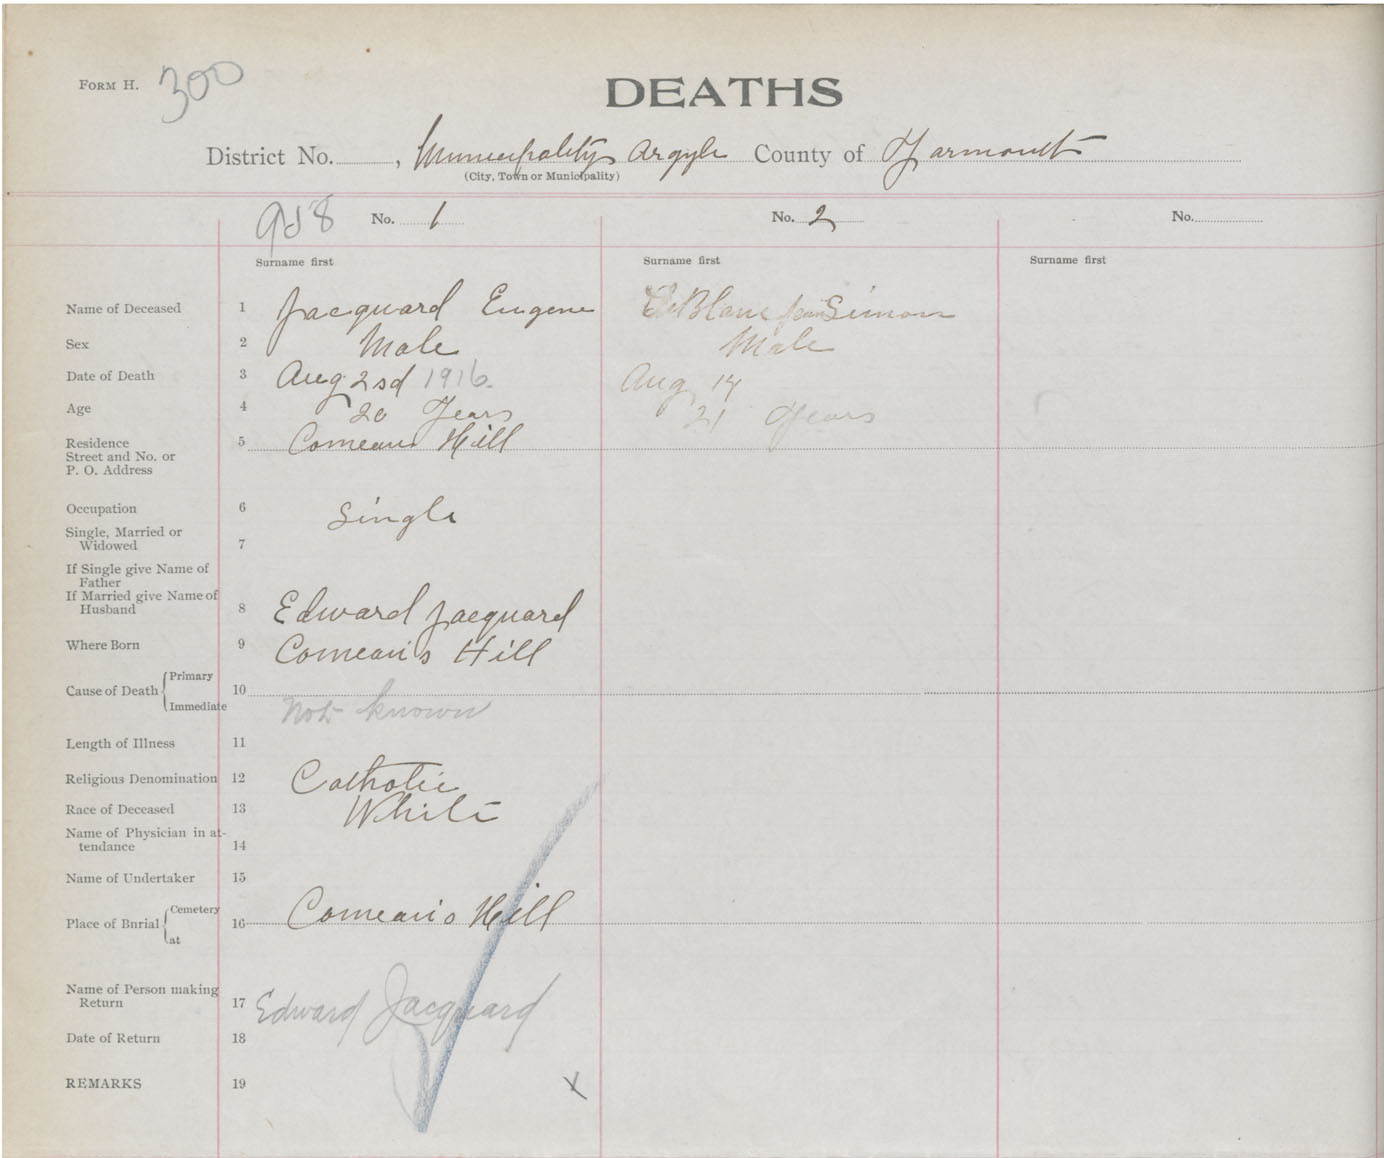 FORM H. 300
DEATHS
District No. , Municipality Argyle County of Yarmouth
(City, Town or Municipality)
No. 1 No. 2 No.
Surname first Surname first Surname first
Name of Deceased 1 Jacquard Eugene LeBlanc Simon
Sex 2 Male Male
Date of Death 3 Aug 2sd 1916. Aug 14
Age 4 20 Years 21 Years
Residence 5 Comeaus Hill
Street and No. or
P. O. Address
Occupation 6 Single
Single, Married or
Widowed 7
If Single give Name of
Father
If Married give Name of
Husband 8 Edward Jacquard
Where Born 9 Comeau's Hill
Primary
Cause of Death 10
Immediate Not known
Length of Illness 11
Religious Denomination 12 Catholic
Race of Deceased 13 White
Name of Physician in at-
tendance 14
Name of Undertaker 15
Cemetery
Place of Bnrial 16 Comeau's Hill
at
Name of Person making
Return 17 Edward Jacquard
Date of Return 18
REMARKS 19 x